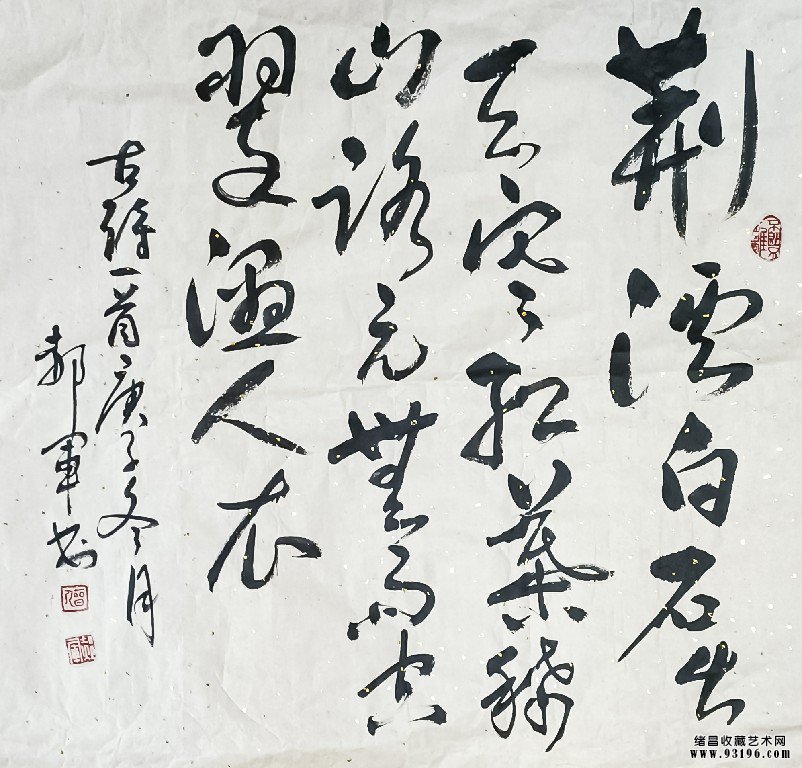 荆溪白石出
天寒红葉稀
山路元無雨空
翠湿人衣
古詩一首庚子冬月
郝軍书
绪昌收藏艺术网
www.93196.com